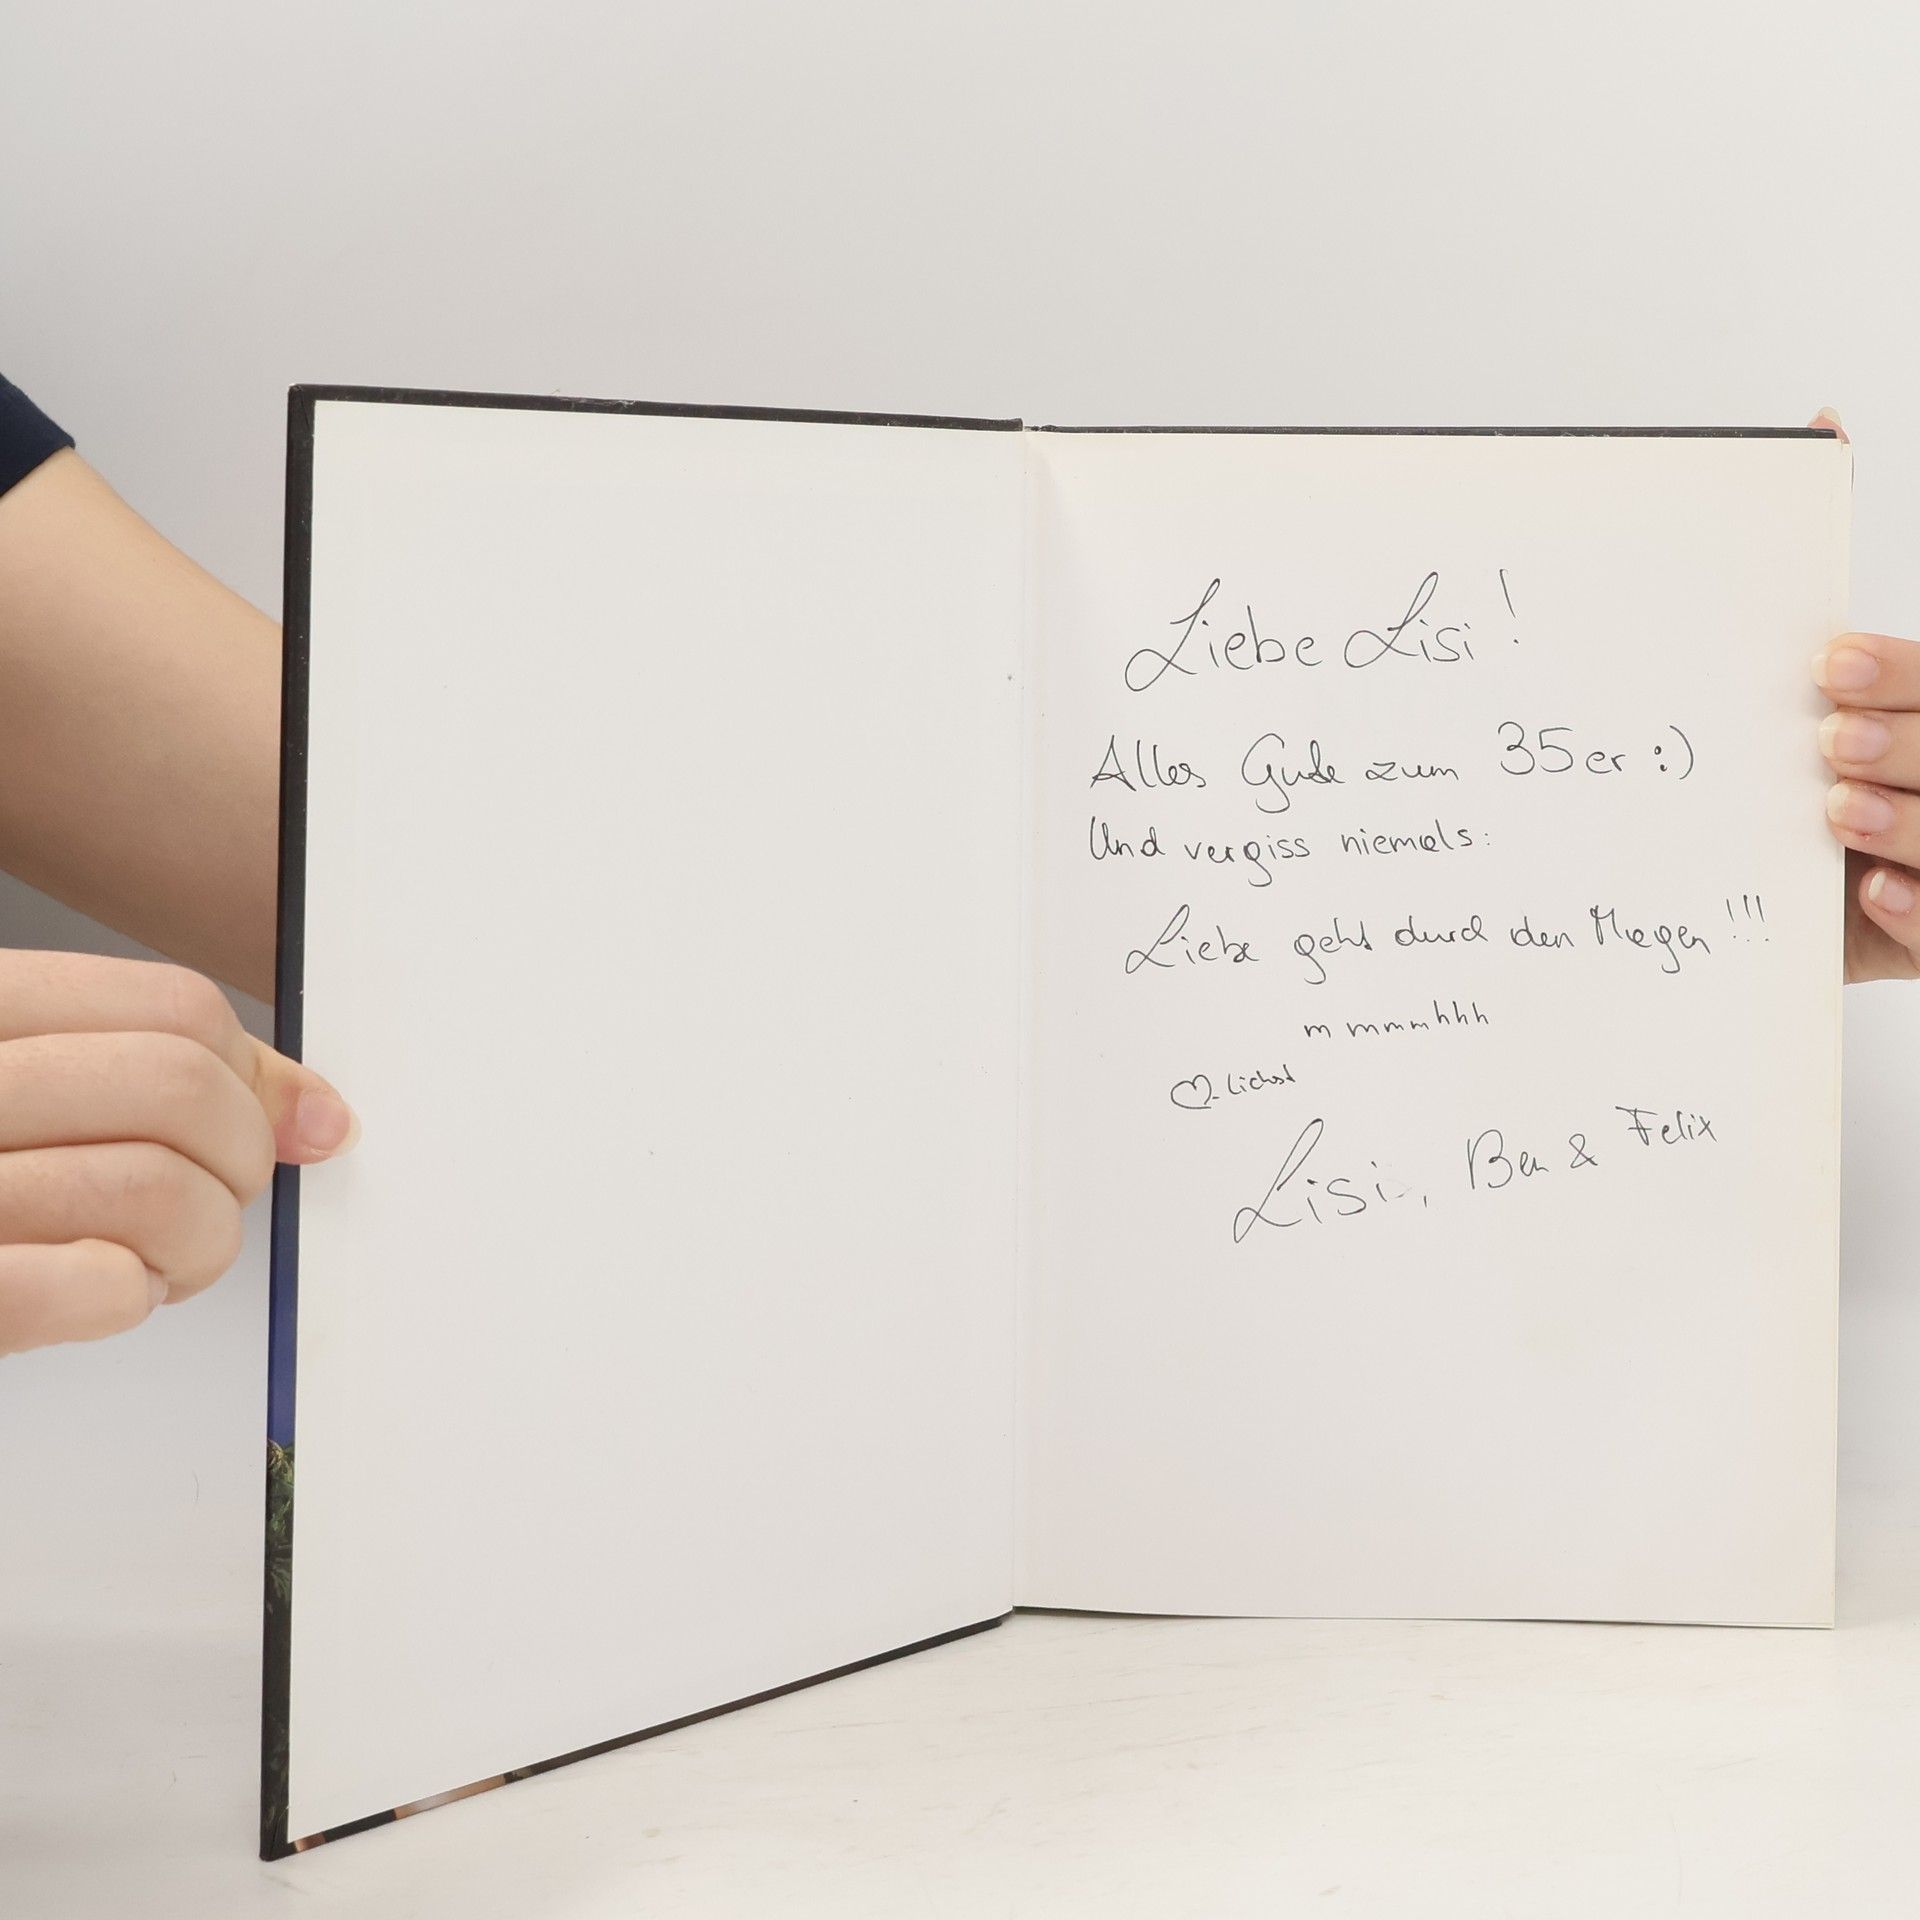 Liebe Lisi!
Alles Gute zum 35er :)
Und vergiss niemals:
Liebe geht durch den Magen!!!
m mmmhhh
♡-lichst
Lisi, Ben & Felix